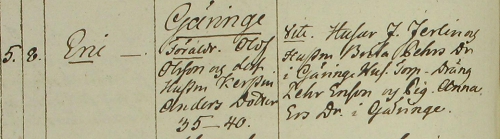 5. 8. Eric —
Gäringe
Föräldr. Olof
Olsson og dess
Hustru Kerstin
Anders Dotter
35—40.
Vit. Husar J. Jerling
Hustru Brita Pehrs Dr
i Gäringe Hus. Torp. Dräng
Pehr Ersson og Pig. Anna
Ers Dr i Gäringe.